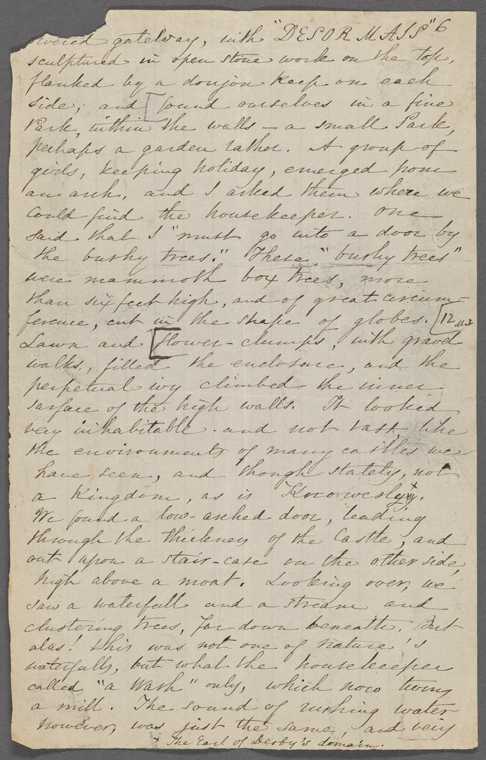 towered gateway, with "DESORMAIS" 6
sculptured in open stone work on the top,
flanked by a donjon keep on each
side; and [found ourselves in a fine
Park, within the walls — a small Park,
perhaps a garden rather. A group of
girls, keeping holiday, emerged from
an arch, and I asked them where we
could find the housekeeper. One
said that I "must go into a door by
the bushy trees." These "bushy trees"
were mammoth box trees, more
than six feet high, and of great circum-
ference, cut in the shape of globes. [12
Lawn and [flower-clumps, with gravel
walks, filled the enclosure, and the
perpetual ivy climbed the inner
surface of the high walls. It looked
very inhabitable and not vast like
the environments of many castles we
have seen, and though stately, not
a Kingdom, as is Knowwesly x.
We found a low-arched door, leading
through the thickness of the Castle, and
out upon a stair-case on the other side,
high above a moat. Looking over, we
saw a waterfall and a stream and
clustering trees, far down beneath. But
alas! this was not one of nature's
waterfalls, but what the housekeeper
called "a Wash" only, which now turns
a mill. The sound of rushing water
however, was just the same, and very
x The Earl of Derby's domain.